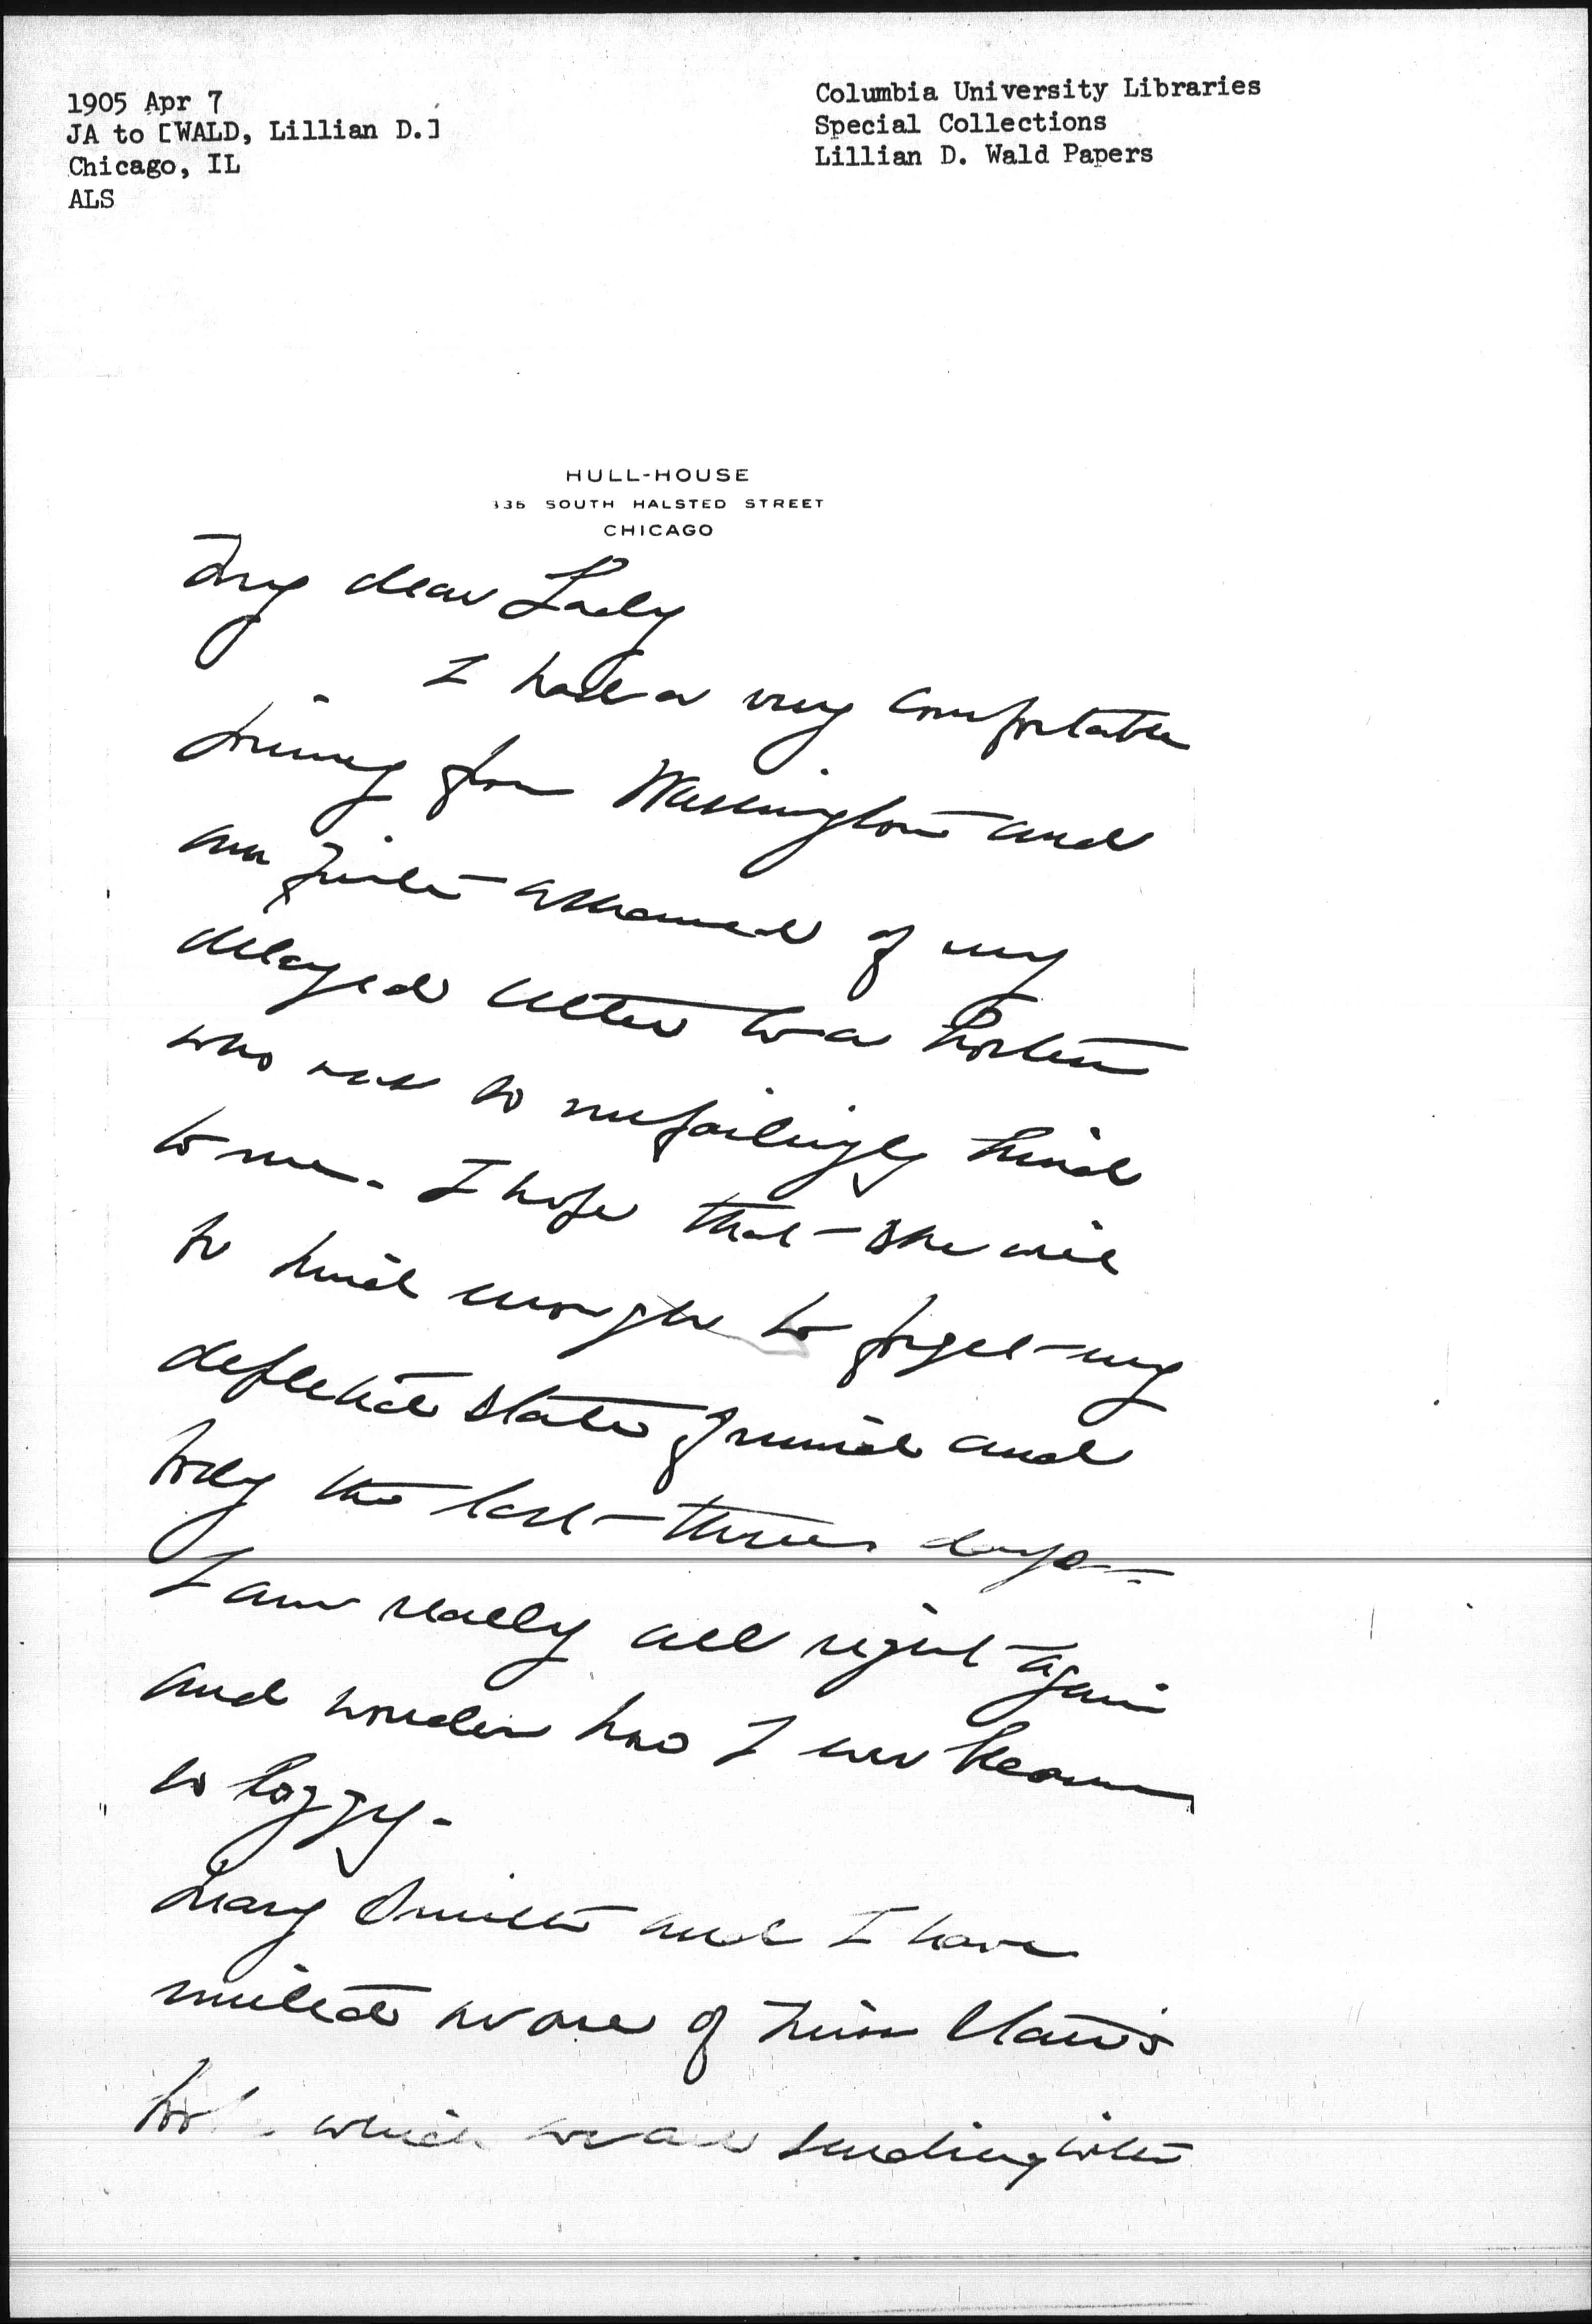 1905 Apr 7
JA to [WALD, Lillian D.]
Chicago, IL
ALS
Columbia University Libraries
Special Collections
Lillian D. Wald Papers
HULL-HOUSE
335 SOUTH HALSTED STREET
CHICAGO
My dear Lady
I had a very comfortable
journey from Washington and
am quite ashamed of my
delayed letter to a hostess
who was so unfailingly kind
to me. I hope that she will
be kind enough to forget my
state of mind and
body the last three days—
I am really all right again
and wonder how I ever became
so loggy.
Mary Smith and I have
united we are of Miss
book which we are sending with